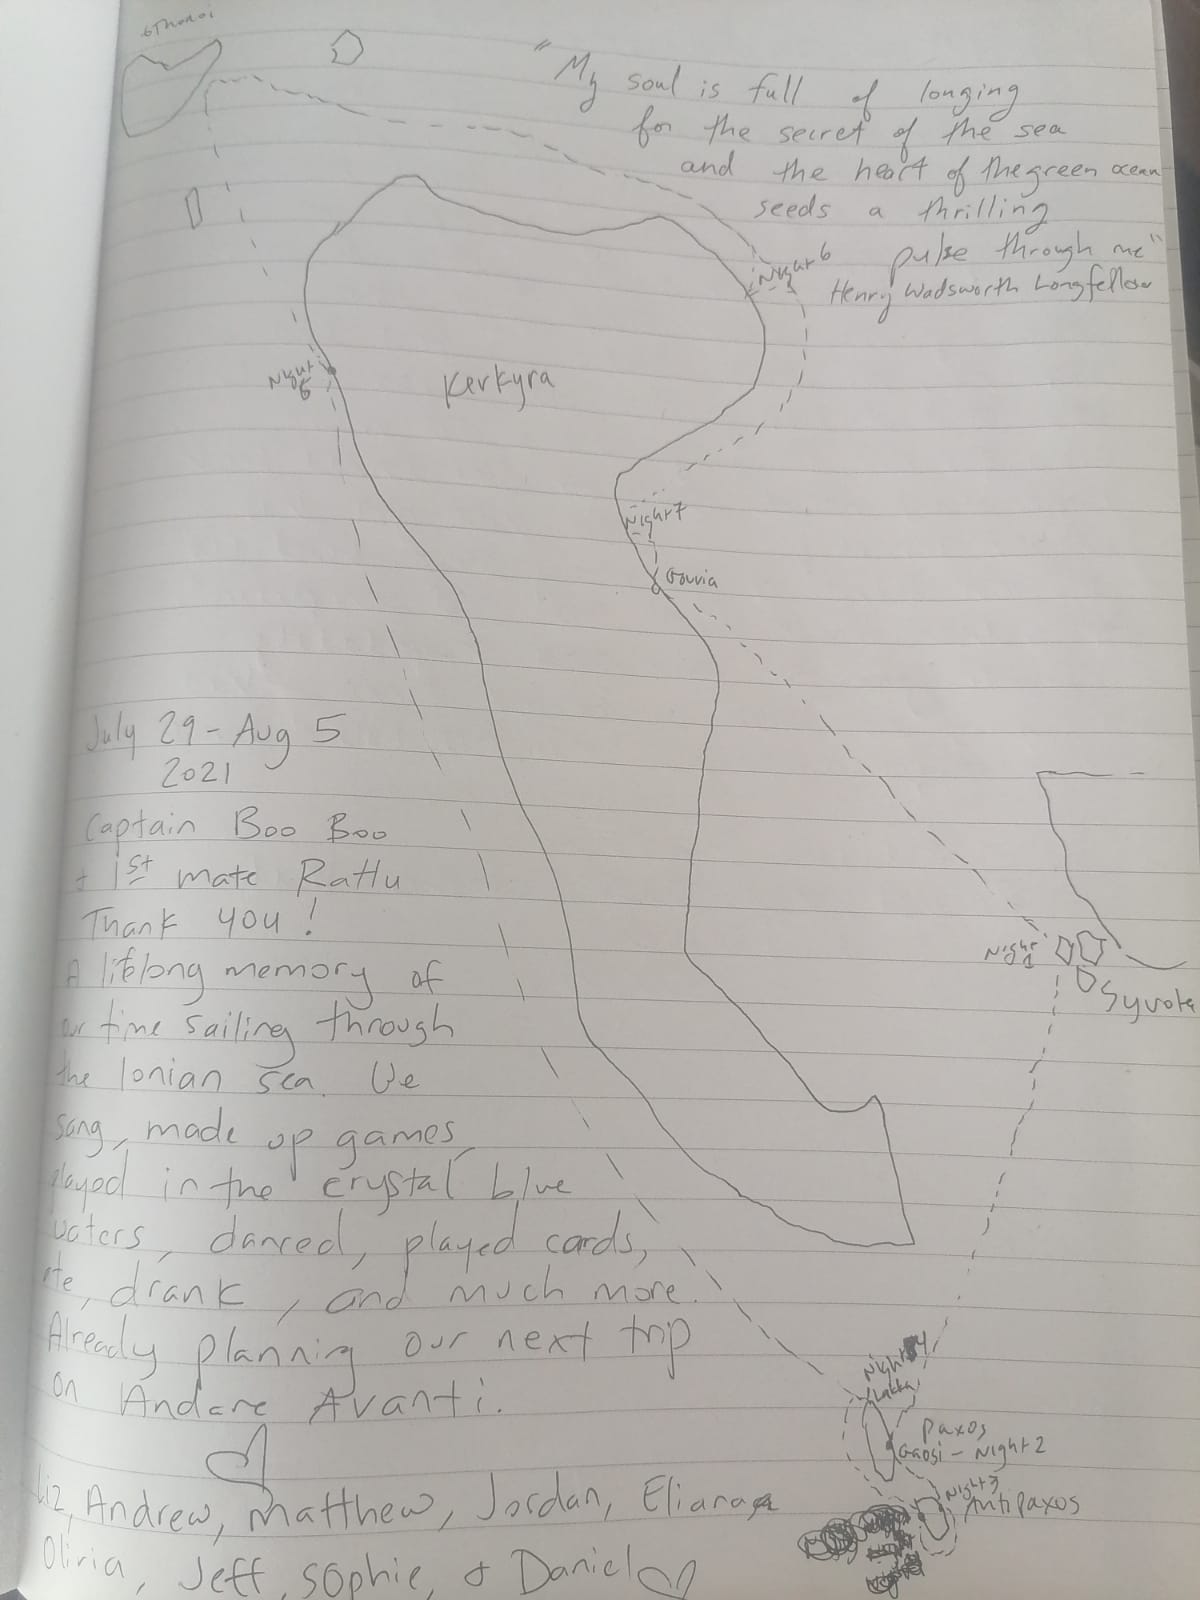 "My soul is full of longing
for the secret of the sea
and the heart of the green ocean
seeds a thrilling
pulse through me"
Henry Wadsworth Longfellow
Night 6
Night
Kerkyra
Night 7
Gouvia
July 29 - Aug 5
2021
Captain Boo Boo
+ 1st mate
Thank you!
A lifelong memory of
our time sailing through
the Ionian sea. We
sang, made up games
played in the crystal blue
waters, danced, played cards,
ate, drank, and much more.
Already planning our next trip
on Andare Avanti.
Liz, Andrew, Matthew, Jordan, Eliana
Olivia, Jeff, Sophie, & Daniel
Night 1
Syvota
Night 4
Lakka
Paxos
Gaosi - Night 2
Night 3
Antipaxos